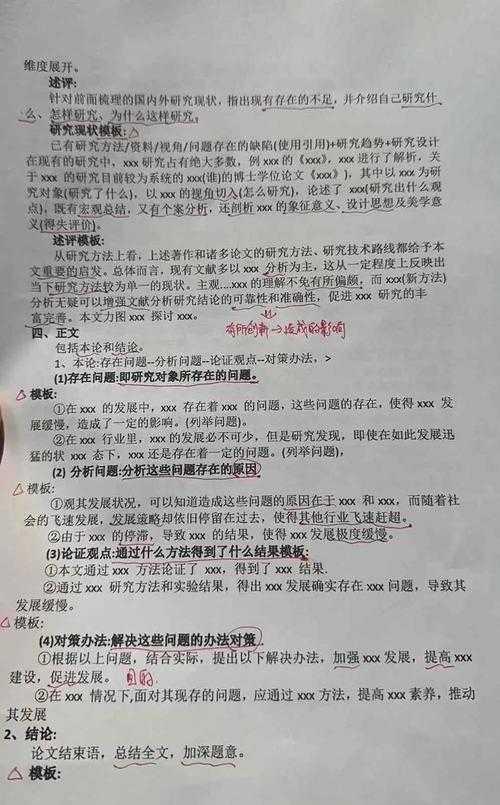 维度展开。
述评:
针对前面梳理的国内外研究现状，指出现有存在的不足，并介绍自己研究什
么、怎样研究、为什么这样研究。
研究现状模板:
已有研究方法/资料/视角/问题存在的缺陷(使用引用)+研究趋势+研究设计
在现有的研究中，xxx 研究占有绝大多数，例 xxx 的《xxx》，xxx 进行了解析，关
于 xxx 的研究目前较为系统的 xxx(谁)的博士学位论文《xxx》)，其中以 xxx 为研
究对象(研究了什么)，以 xxx 的视角切入(怎么研究)，论述了 xxx(研究出什么观
点)，既有宏观总结，又有个案分析，还剖析 xxx 的象征意义、设计思想及美学意
义(得失评价)。
述评模板:
从研究方法上看，上述著作和诸多论文的研究方法、研究技术路线都给予本
文重要的启发。总体而言，现有文献多以 xxx 分析为主，这从一定程度上反映出
当下研究方法较为单一的现状。主观....xxx 的理解不免有所偏颇，而 xxx(新方法)
分析无疑可以增强文献分析研究结论的可靠性和准确性，促进 xxx 研究的丰
富完善。本文力图 xxx 探讨 xxx。
有所创新→造成的影响
四、正文
包括本论和结论。
1、本论:存在问题--分析问题--论证观点--对策办法，>
(1)存在问题:即研究对象所存在的问题。
模板:
①在 xxx 的发展中，xxx 存在着 xxx 的问题，这些问题的存在，使得 xxx 发
展缓慢，造成了一定的影响。(列举问题)。
②在 xxx 行业里，xxx 的发展必不可少，但是研究发现，即使在如此发展迅
猛的状 xxx 态下，xxx 还是存在着一定的问题。(列举问题)，
(2) 分析问题:分析这些问题存在的原因
模板:
①观其发展状况，可以知道造成这些问题的原因在于 xxx 和 xxx，而随着社
会的飞速发展，发展策略却依旧停留在过去，使得其他行业飞速赶超。
②由于 xxx 的停滞，导致 xxx 的结果，使得 xxx 发展极度缓慢。
(3)论证观点:通过什么方法得到了什么结果模板:
①本文通过 xxx 方法论证了 xxx，得到了 xxx 结果.
②通过 xxx 研究方法和实验结果，得出 xxx 发展确实存在 xxx 问题，导致其
发展缓慢。
模板:
(4)对策办法:解决这些问题的办法对策
①根据以上问题，结合实际，提出以下解决办法，加强 xxx 发展，提高 xxx
建设，促进发展。
②在 xxx 情况下,面对其现存的问题，应通过 xxx 方法，提高 xxx 素养，推动
其发展
2、结论:
论文结束语，总结全文，加深题意。
模板: